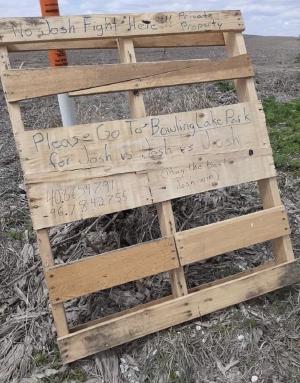 No Josh Fight Here!!! Private Property
Please Go To Bowling Lake Park
for Josh vs Josh vs Josh
40.8654791
-96.7842755
(May the best
Josh win)